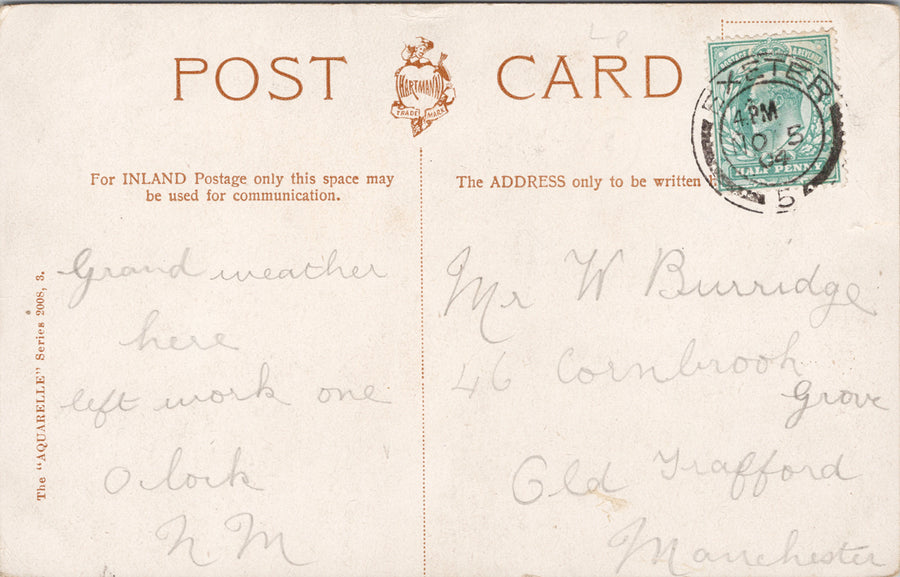 POST CARD
HARTMANN
TRADE MARK
POSTAGE & REVENUE
HALF PENNY
EXETER
4. PM
NO 5
04
5
For INLAND Postage only this space may
be used for communication.
The ADDRESS only to be written
The "AQUARELLE" Series 2008, 3.
Grand weather
here
left work one
O lock
N. M
Mr W Burridge
46 Cornbrook
Grove
Old Trafford
Manchester